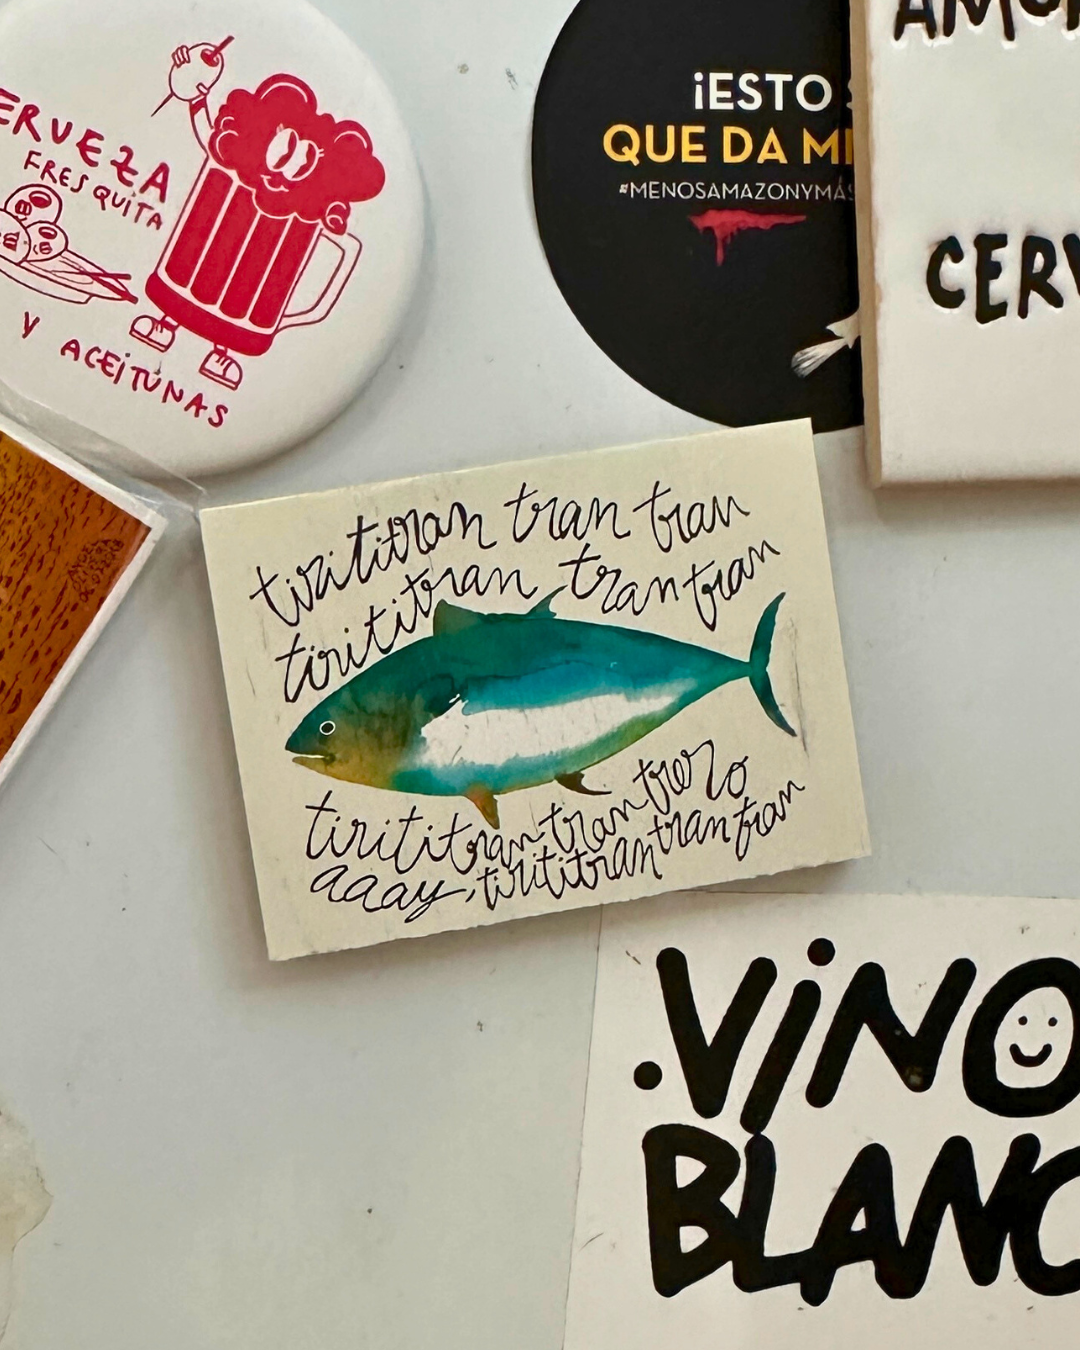 ERVEZA
FRESQUITA
Y ACEiTUNAS
¡ESTO
QUE DA MI
#MENOSAMAZONYMÁS
AMOR
CERV
tirititran tran tran
tirititran tran tran
tirititran tran trero
aaay, tirititran tran tran
.ViNO
BLANC